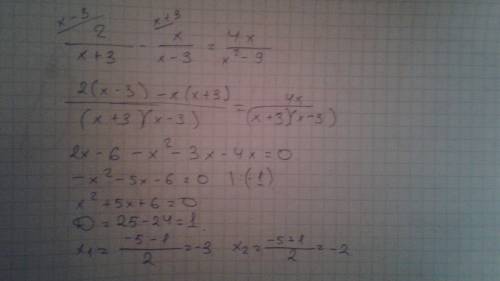 x-3 x+3
2/(x+3) - x/(x-3) = 4x/(x²-9)
(2(x-3) - x(x+3))/((x+3)(x-3)) = 4x/((x+3)(x-3))
2x-6-x²-3x-4x=0
-x²-5x-6=0 |:(-1)
x²+5x+6=0
D=25-24=1
x₁=(-5-1)/2=-3 x₂=(-5+1)/2=-2